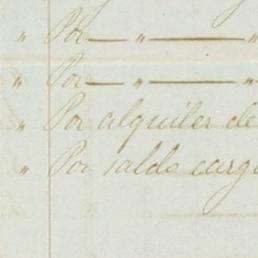 " Por — " — "
" Por — " — "
" Por alquiler de
" Por saldo carg